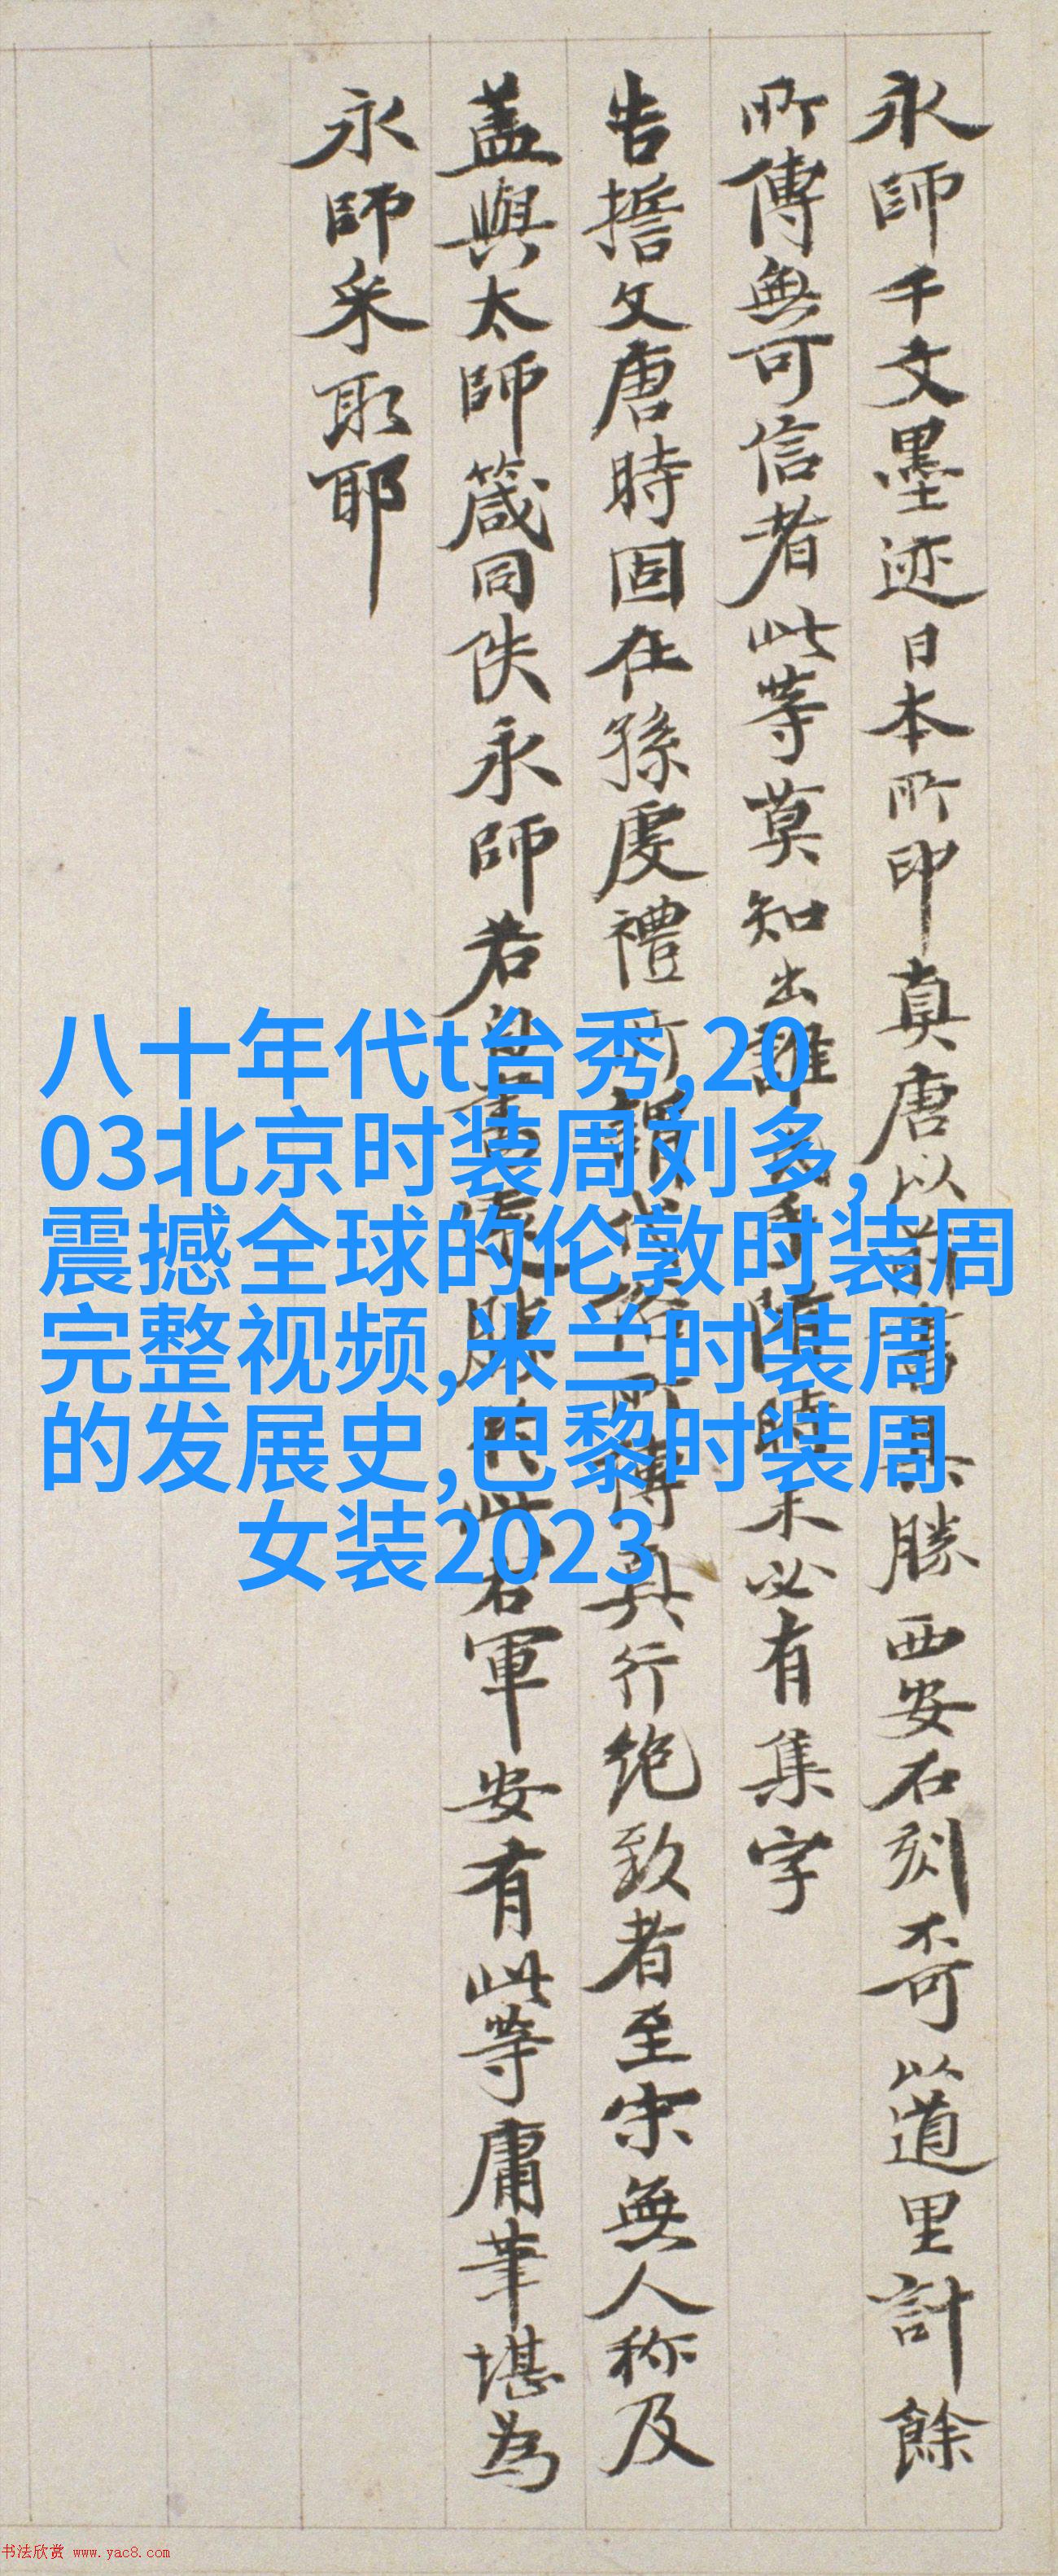 永師千文墨迹日本所印真唐以前書其勝西安石刻不可以道里計餘
所傳無可信者此等莫知出誰手隋時未必有集字
告誓文唐時固在孫虔禮所謂代俗所傳真行绝致者至宋無人称及
盖與太師箴同佚永師若自書遠勝於此右軍安有此等庸筆堪為
永師采取耶
八十年代t台秀,20
03北京时装周刘多,
震撼全球的伦敦时装周
完整视频,米兰时装周
的发展史,巴黎时装周
女装2023
书法欣赏 www.yac8.com